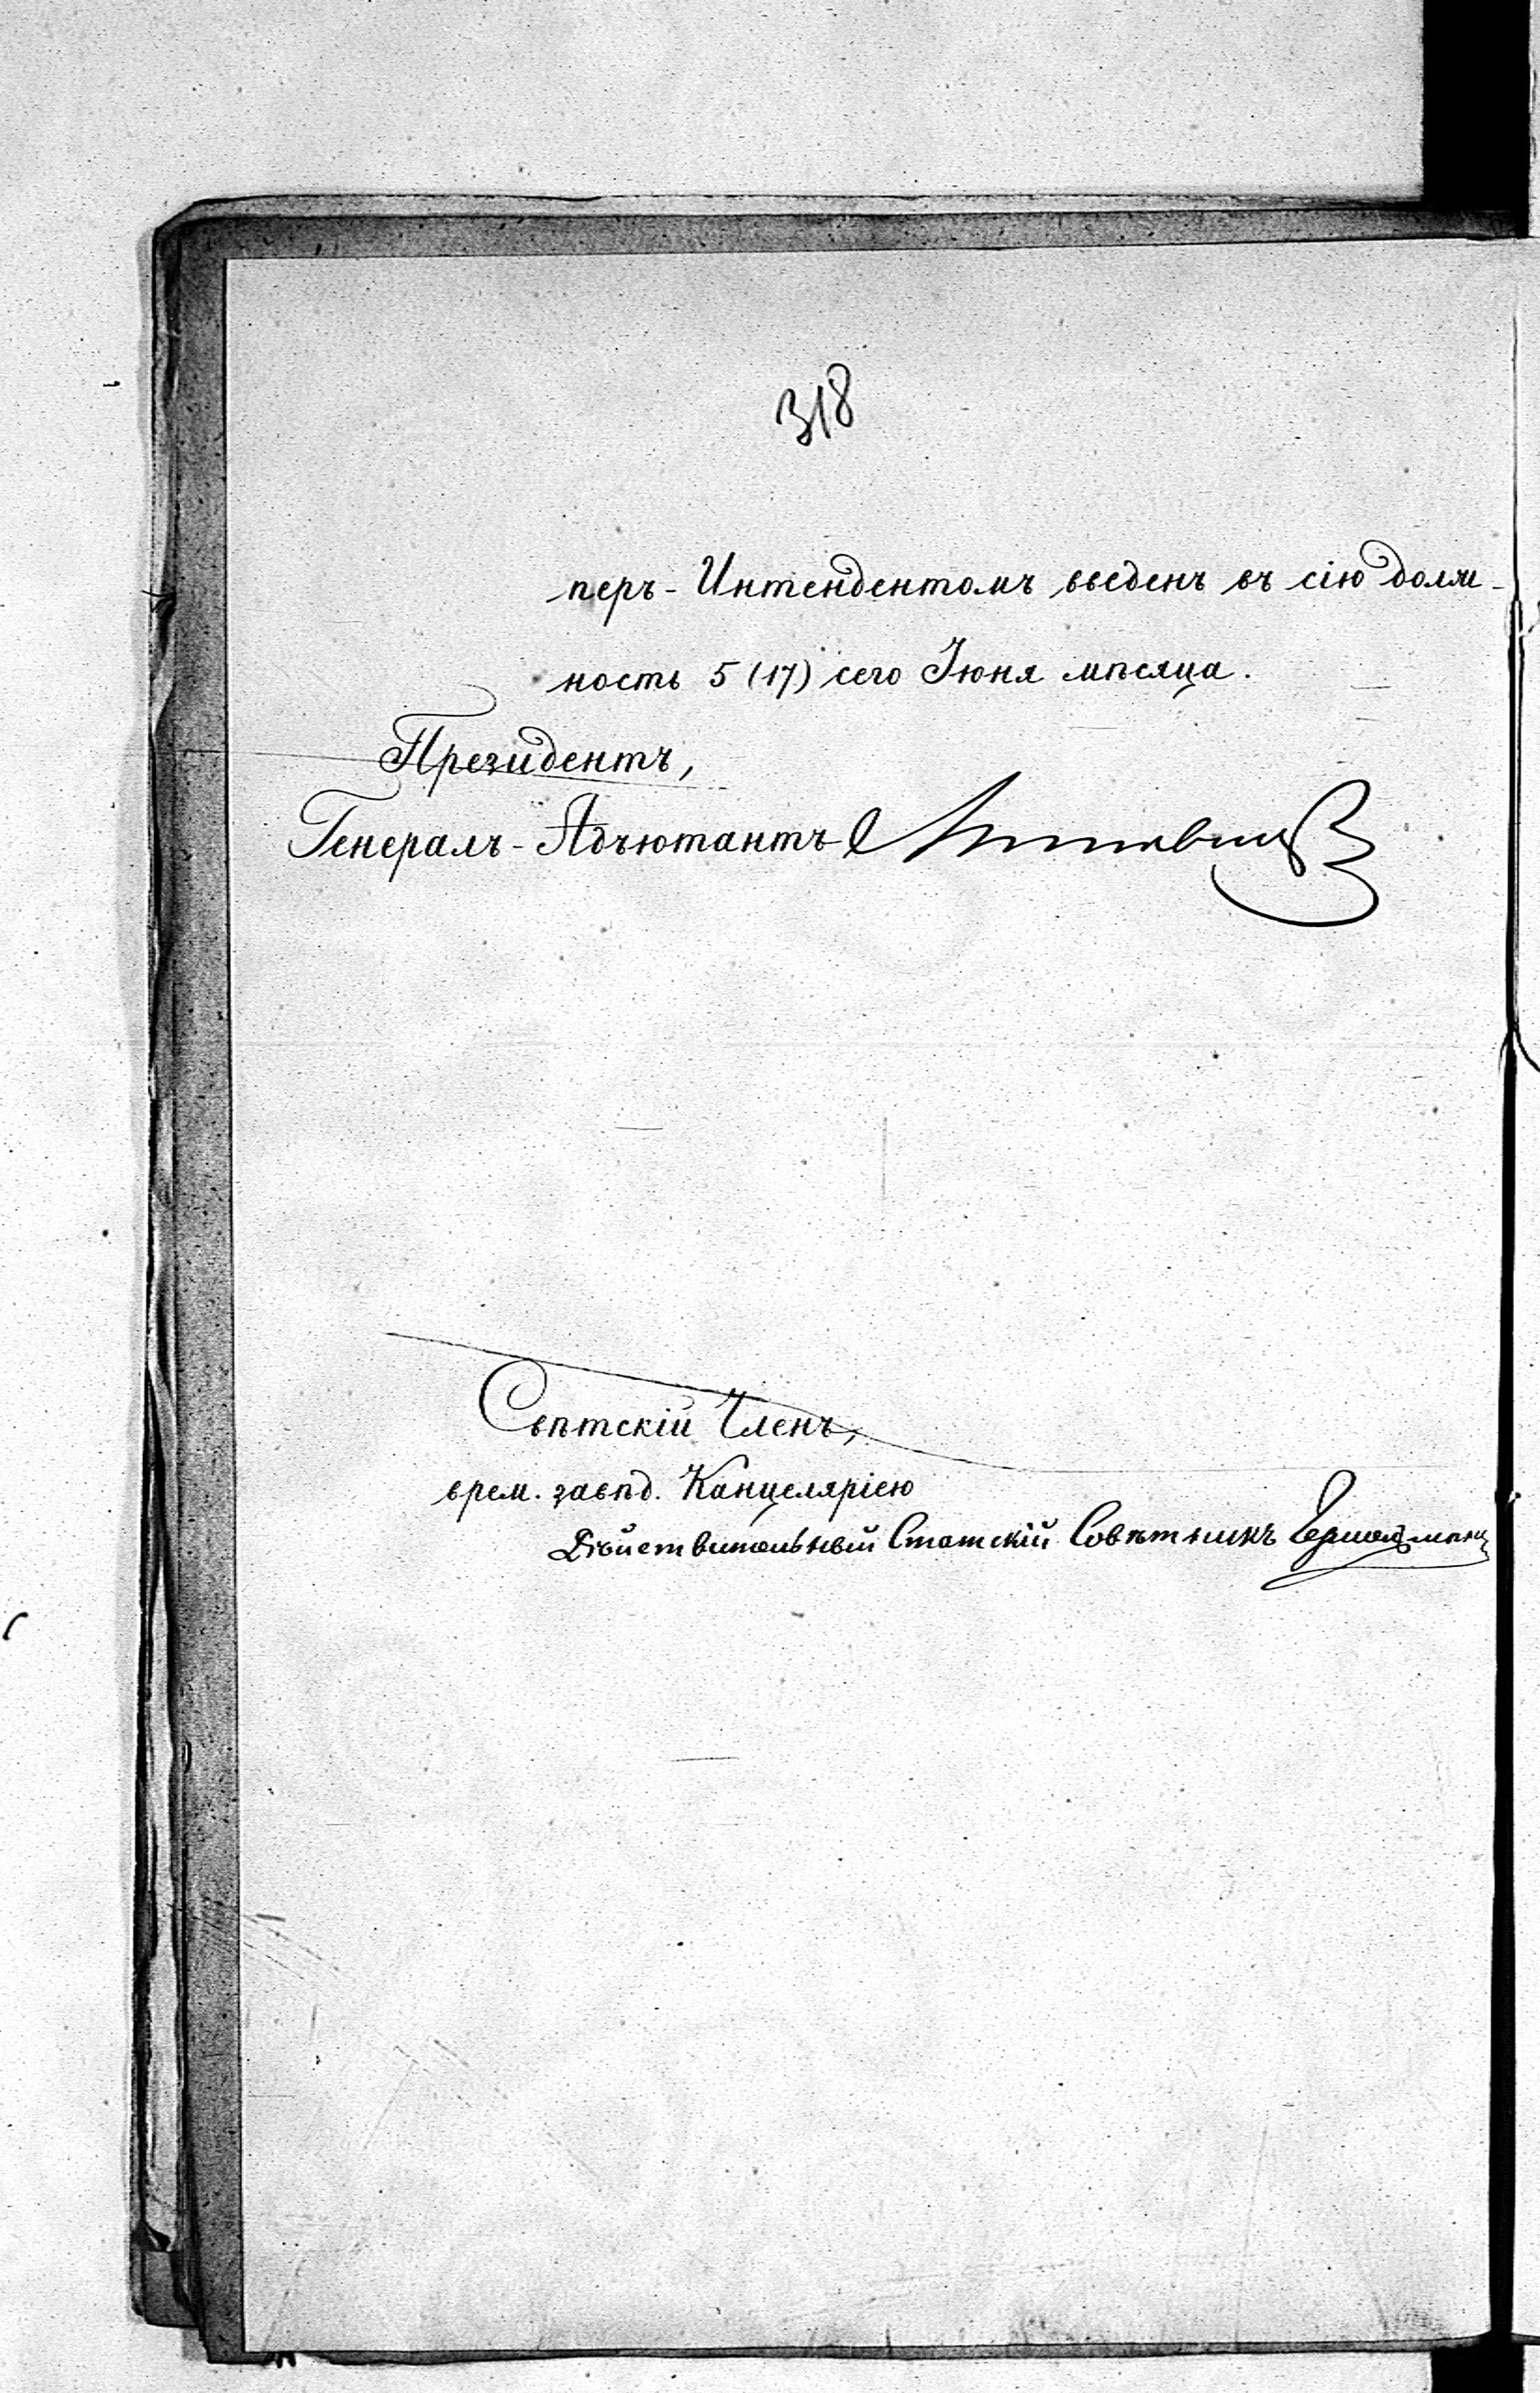 318
перъ-Интендентомъ введенъ въ сію долж-
ность 5 (17) сего Іюня мѣсяца.
Президентъ,
Генералъ-Адъютантъ
Свѣтскій Членъ,
врем. завѣд. Канцеляріею
Дѣйствительный Статскій Совѣтникъ